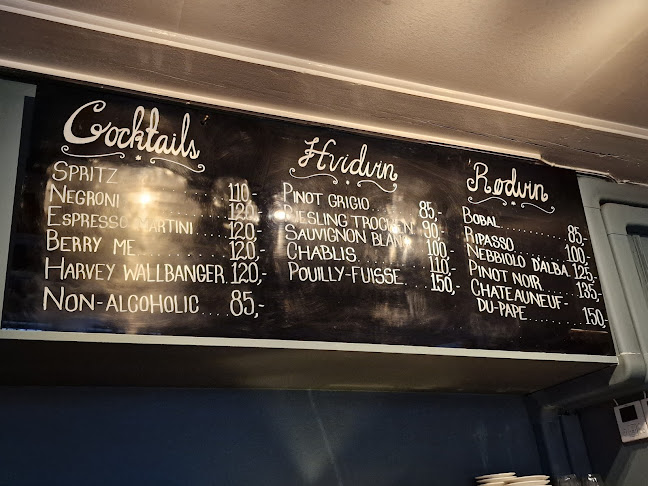 Cocktails
SPRITZ 110,-
NEGRONI 120,-
ESPRESSO MARTINI 120,-
BERRY ME 120,-
HARVEY WALLBANGER 120,-
NON-ALCOHOLIC 85,-
Hvidvin
PINOT GRIGIO 85,-
RIESLING TROCKEN 90,-
SAUVIGNON BLANC 100,-
CHABLIS 110,-
POUILLY-FUISSE 150,-
Rødvin
BOBAL 85,-
RIPASSO 100,-
NEBBIOLO D'ALBA 125,-
PINOT NOIR 135,-
CHATEAUNEUF-
DU-PAPE 150,-